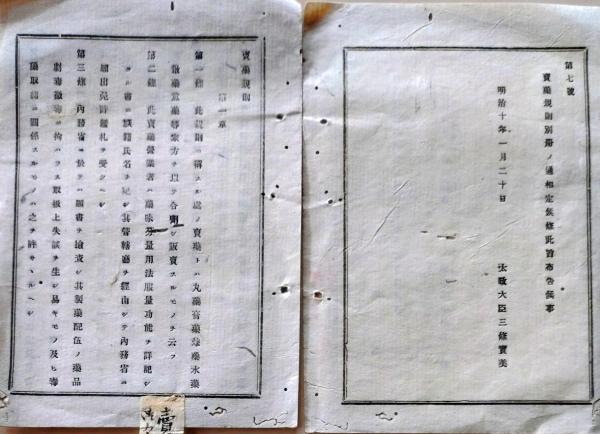 第七號
賣藥規則別册ノ通相定候條此旨布告候事
明治十年一月二十日
太政大臣三條實美
賣藥規則
第一章
第一條 此規則ニ稱スル處ノ賣藥トハ丸藥膏藥煉藥水藥
散藥煎藥等家方ヲ以テ合劑シ販賣スルモノヲ云フ
第二條 此賣藥營業者ハ藥味分量用法服量功能ヲ詳記シ
タル書ニ族籍氏名ヲ記シ其管轄廳ヲ經由シテ內務省ニ
願出免許鑑札ヲ受クヘシ
第三條 內務省ニ於テハ願書ヲ檢査シ其製藥配伍ノ藥品
劇毒微毒ニ拘ハラス取扱上失誤ヲ生シ易キモノ及ヒ毒
藥取締ニ關係スルモノハ之ヲ許サヽルヘシ
賣